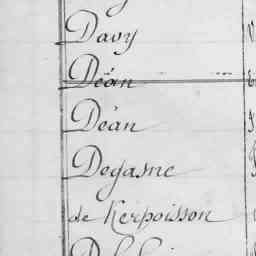 Davy
Déan
Déan
Degasne
de Kerpoisson